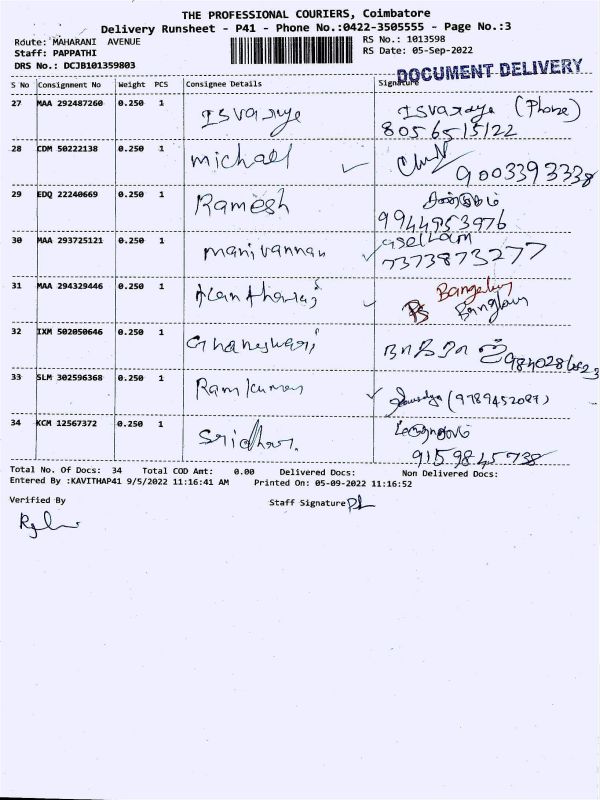 THE PROFESSIONAL COURIERS, Coimbatore
Delivery Runsheet - P41 - Phone No.:0422-3505555 - Page No.:3
Route: MAHARANI AVENUE
RS No.: 1013598
Staff: PAPPATHI
RS Date: 05-Sep-2022
DRS No.: DCJB101359803
DOCUMENT DELIVERY
S No Consignment No Weight PCS Consignee Details Signature
27 MAA 292487260 0.250 1 Isvarye Isvaraye (Phone)
8056515122
28 CDM 50222138 0.250 1 michael
9003393338
29 EDQ 22240669 0.250 1 Ramesh
9944953976
30 MAA 293725121 0.250 1 manivannan
7373873277
31 MAA 294329446 0.250 1
32 IXM 502050646 0.250 1 Ghaneshwari
33 SLM 302596368 0.250 1 Ramkumar (9789452087)
34 KCM 12567372 0.250 1 Sridhar
9159845738
Total No. Of Docs: 34 Total COD Amt: 0.00 Delivered Docs: Non Delivered Docs:
Entered By :KAVITHAP41 9/5/2022 11:16:41 AM Printed On: 05-09-2022 11:16:52
Verified By
Staff Signature